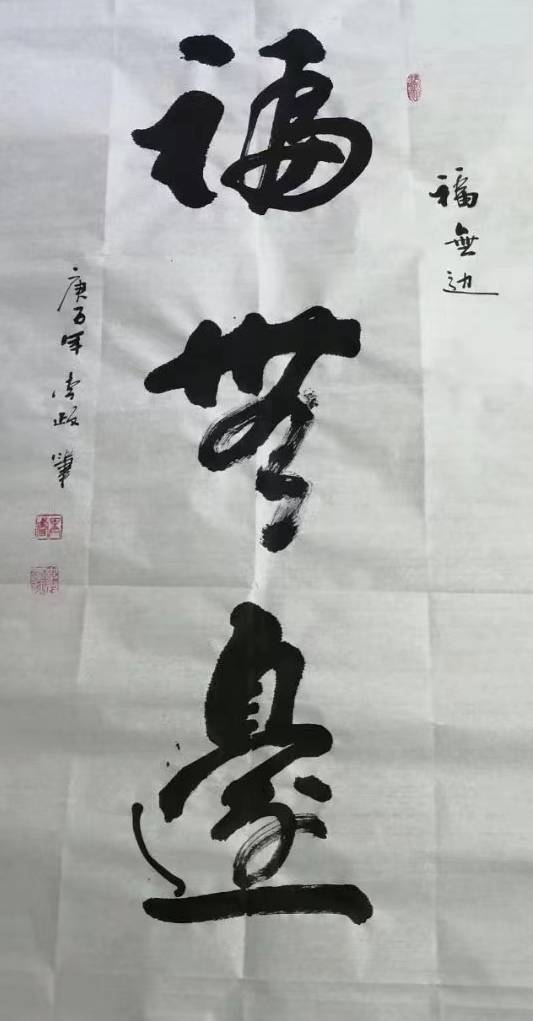 福無邊
福無边
庚子年 李政 筆